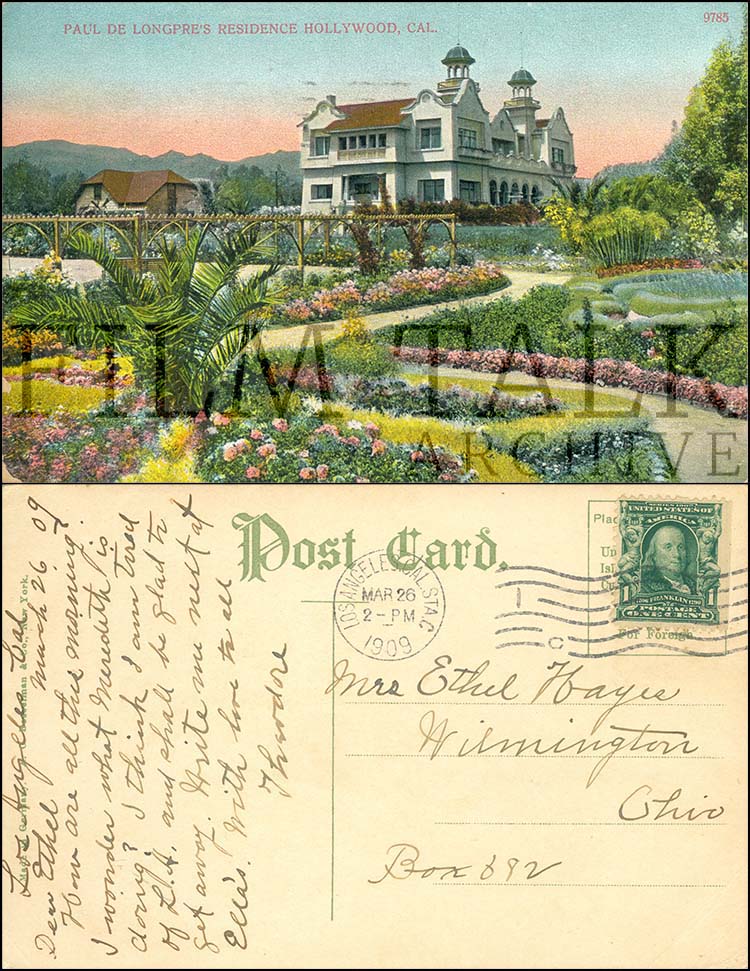 PAUL DE LONGPRE'S RESIDENCE HOLLYWOOD, CAL.
9785
FILM TALK
ARCHIVE
Post Card.
LOS ANGELES, CAL. STA. C.
MAR 26
2-PM
1909
SERIES 1902
UNITED STATES OF
AMERICA
1706 FRANKLIN 1790
1 1
POSTAGE
ONE CENT
Plac
Un
Isl
For Foreign
Mrs Ethel Hayes
Wilmington
Ohio
Box 692
Los Angeles Cal
March 26 09
Dear Ethel
How are all this morning?
I wonder what Meredith is
doing? I think I am tired
of L.A. and shall be glad to
get away. Write me next at
Ella's. With love to all
Theodore
Made in Germany
New York.